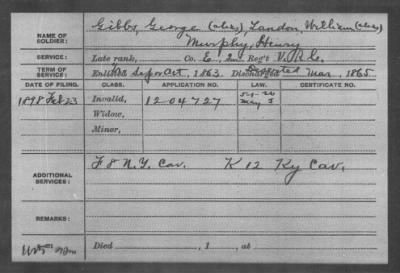 NAME OF SOLDIER: Gibbs, George (alias), Landon, William (alias)
Murphy, Henry
SERVICE: Late rank, Co. E, 2 Reg't V.R.C.
TERM OF SERVICE: Enlisted Sep or Oct, 1863. Discharged Deserted Mar, 1865
DATE OF FILING. CLASS. APPLICATION NO. LAW. CERTIFICATE NO.
1898 Feb 23 Invalid, 1204727
Widow,
Minor,
ADDITIONAL SERVICES: F 8 N.Y. Cav. K 12 Ky Cav.
REMARKS:
Died , 1 , at